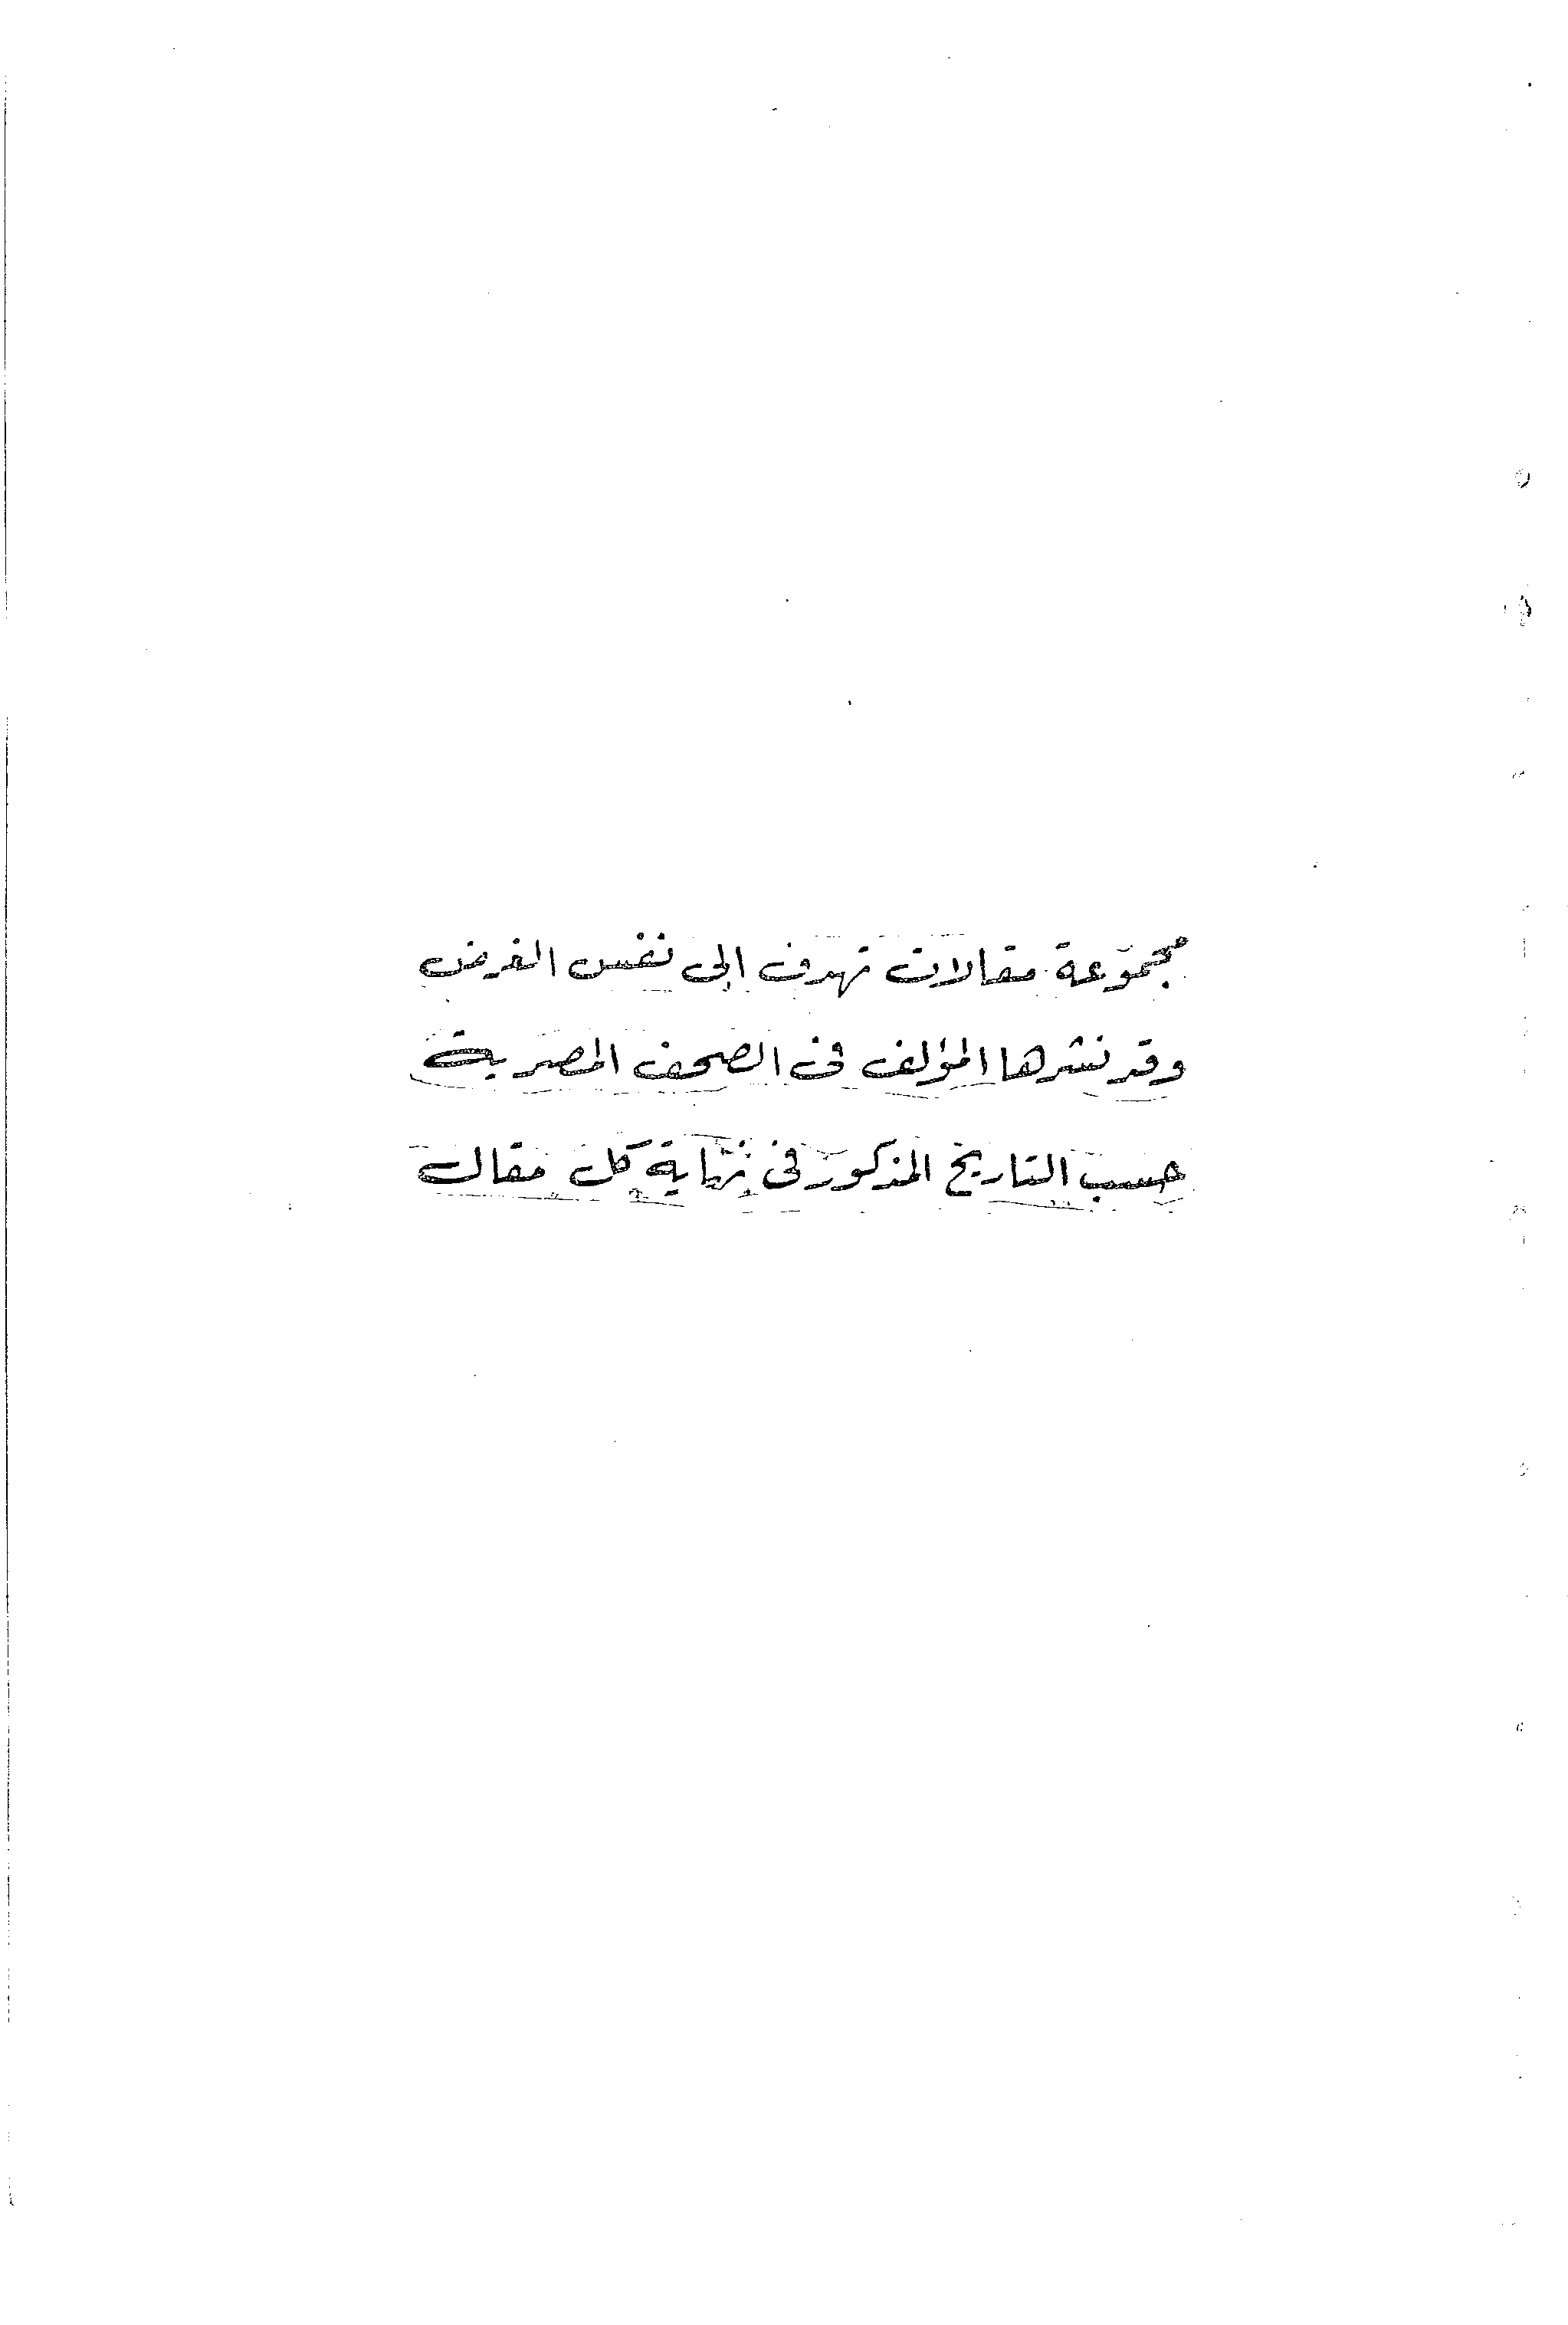 مجموعة مقالات تهدف إلى نفس الغرض
وقد نشرها المؤلف في الصحف المصرية
حسب التاريخ المذكور في نهاية كل مقال